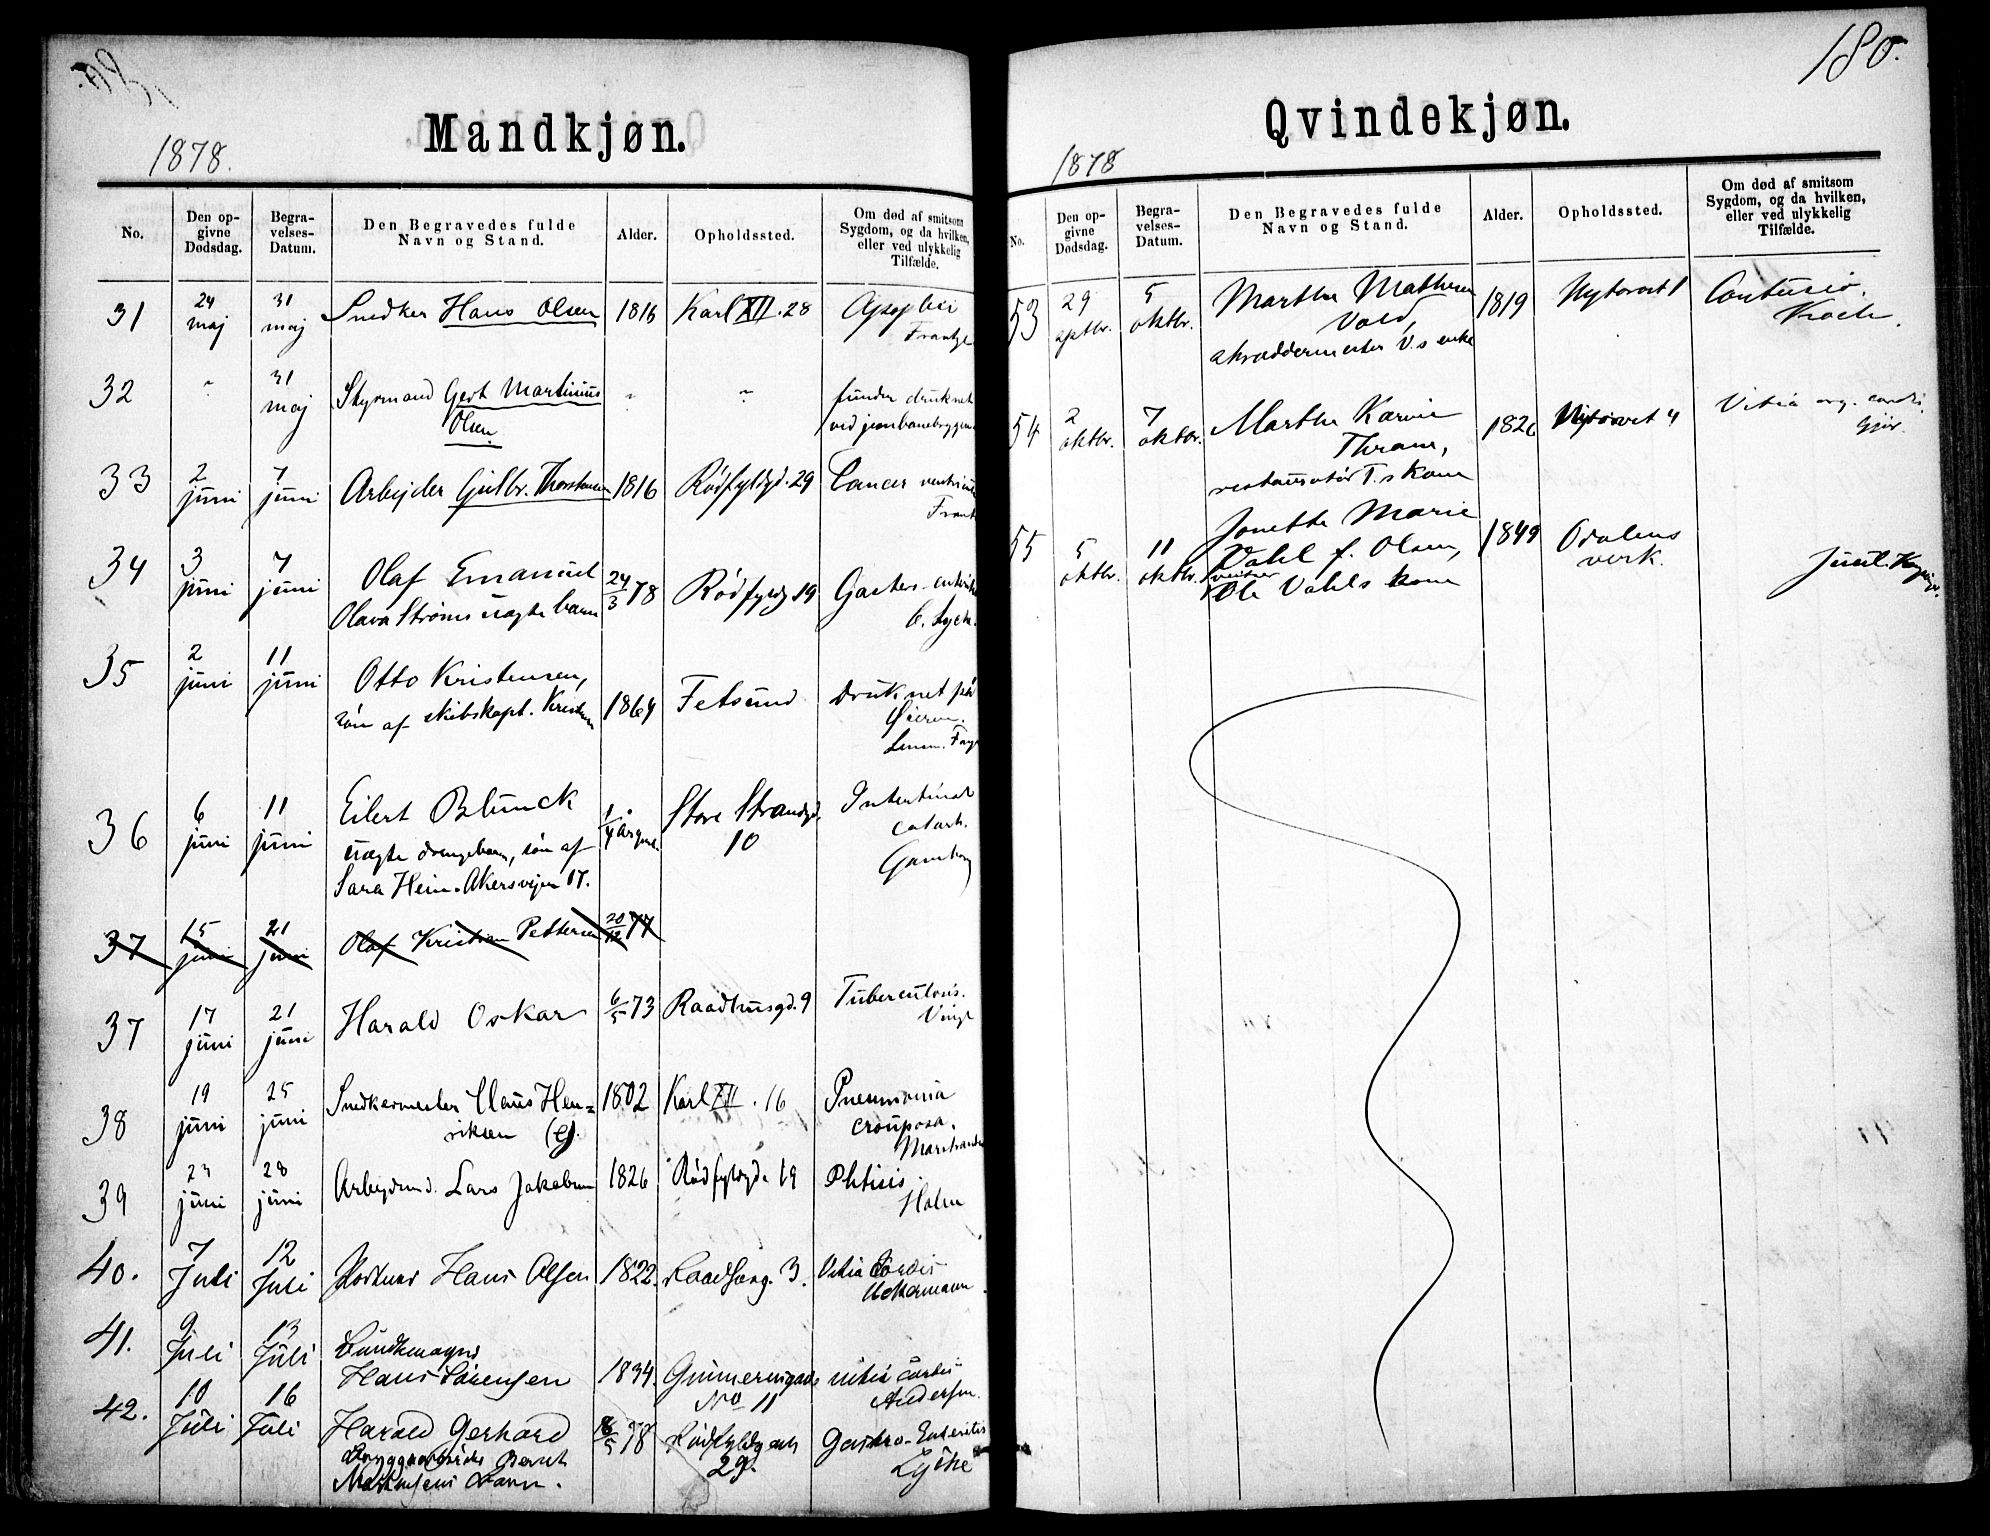 180.
Mandkjøn.
1878.
No.
Den op-
givne
Dødsdag.
Begra-
velses-
Datum.
Den Begravedes fulde
Navn og Stand.
Alder.
Opholdssted.
Om død af smitsom
Sygdom, og da hvilken,
eller ved ulykkelig
Tilfælde.
31 24 maj 31 maj Snedker Hans Olsen 1816 Karl XII. 28
32 " 31 maj Styrmand Gert Martinius " " funden druknet
Olsen ved jernbanebryggen
33 2 juni 7 juni Arbejder Gulbr. Thorstensen 1816 Rødfyldgd. 29 Cancer
34 3 juni 7 juni Olaf Emanuel 24/3 78 Rødfyldg 19
Olava Strøms uægte barn
35 2 juni 11 juni Otto Kristensen, 1864 Fetsund Druknet på
søn af skibskapt. Kristensen Øieren.
36 6 juni 11 juni Eilert Blunck 1/4 år Store Strandgd. Intestinal
uægte drengebarn, søn af 10 catarh.
Sara Hein. Akersvejen 17.
37 15 juni 21 juni Olaf Kristian Pettersen 20/12 77
37 17 juni 21 juni Harald Oskar 6/5 73 Raadhusgd. 9 Tuberculosis.
38 19 juni 25 juni Snedkermester Claus Hen= 1802 Karl XII. 16 Pneumonia
riksen (e). crouposa.
39 23 juni 28 juni Arbejdsmd. Lars Jakobsen 1826 Rødfyldgd. 19 Phtisis.
Holm
40. 7 Juli 12 Juli Hans Olsen 1822. 3. Vitia Cordis
41. 9 Juli 13 Juli
Hans Sørensen 1834. vitia cordis
No 11 Andersen.
42. 10 Juli 16 Juli Harald Gerhard 16/5 78 Gastro-Enteritis
29.
Barn.
Qvindekjøn.
1878
No.
Den op-
givne
Dødsdag.
Begra-
velses-
Datum.
Den Begravedes fulde
Navn og Stand.
Alder.
Opholdssted.
Om død af smitsom
Sygdom, og da hvilken,
eller ved ulykkelig
Tilfælde.
53 29 sptbr. 5 oktbr. Marthe Mathea 1819 Nytorvet 1 Contusio.
Vold,
skræddermester V.s enke
54 2 oktbr. 7 oktbr. Marthe Karine 1826 Nytorvet 4 Vitia org. cordis.
Thrane,
restauratør T.s kone
55 5 oktbr. 11 oktbr. Jonette Marie 1849 Odalens
Dahl f. Olsen, verk.
Ole Dahls kone